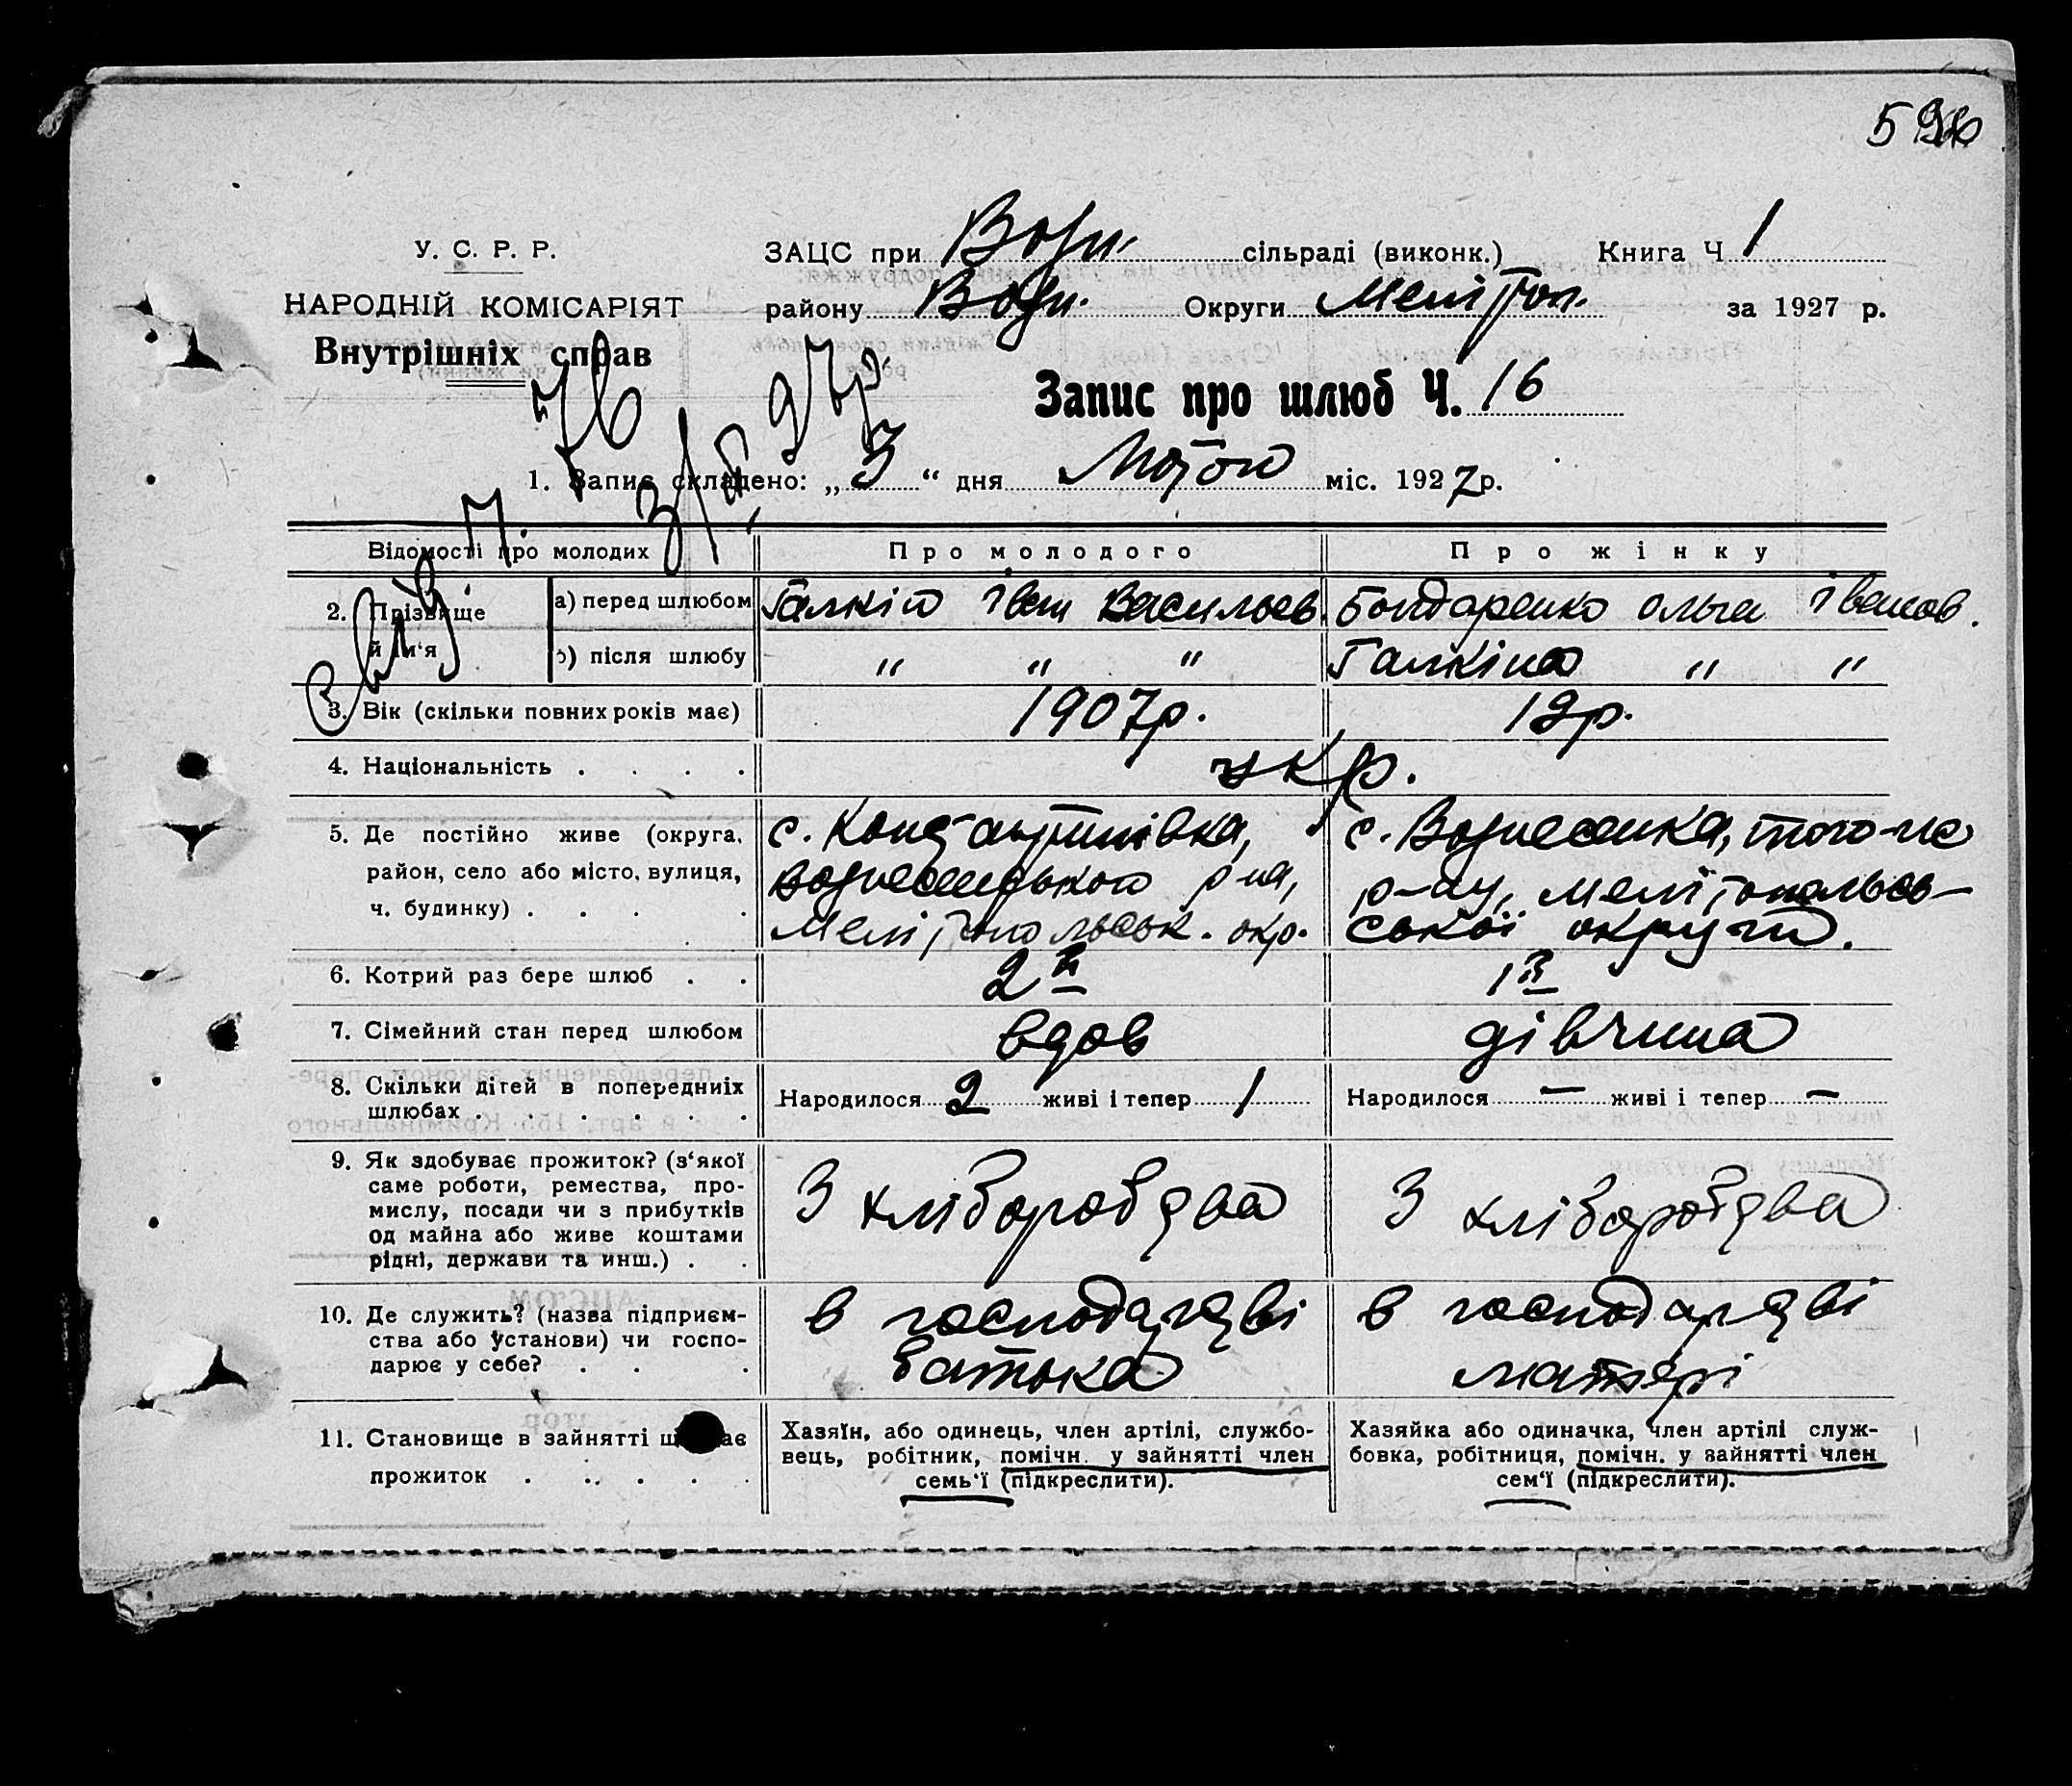 У. С. Р. Р.
НАРОДНІЙ КОМІСАРІЯТ
Внутрішніх справ
ЗАЦС при Возн. сільраді (виконк.) Книга Ч 1
району Возн. Округи Мелітоп. за 1927 р.
Запис про шлюб Ч. 16
1. Запис складено: „ 3 “ дня Лютого міс. 1927 р.
Відомості про молодих
Про молодого
Про жінку
2. Прізвище й ім'я
а) перед шлюбом
Галкін Іван Васильов.
Бондаренко Ольга Іванов.
б) після шлюбу
" " "
Галкіна " "
3. Вік (скільки повних років має)
1907р.
19р.
4. Національність . . . .
укр.
5. Де постійно живе (округа, район, село або місто, вулиця, ч. будинку) . . . .
с. Констянтинівка,
Вознесенського р-на,
Мелітопольськ. окр.
с. Вознесенка, того-же
р-ну, Мелітопольсь-
ської округи.
6. Котрий раз бере шлюб . .
2й
1й
7. Сімейний стан перед шлюбом
вдов
дівчина
8. Скільки дітей в попередніх
шлюбах . . . . . .
Народилося 2 живі і тепер 1
Народилося — живі і тепер —
9. Як здобуває прожиток? (з'якої
саме роботи, ремества, про-
мислу, посади чи з прибутків
од майна або живе коштами
рідні, держави та инш.) . .
З хліборобства
З хліборобства
10. Де служить? (назва підприєм-
ства або установи) чи госпо-
дарює у себе? . . .
в господарстві
батька
в господарстві
матері
11. Становище в зайнятті що дає
прожиток . . . . .
Хазяїн, або одинець, член артілі, службо-
вець, робітник, помічн. у зайнятті член
семь'ї (підкреслити).
Хазяйка або одиначка, член артілі служ-
бовка, робітниця, помічн. у зайнятті член
сем'ї (підкреслити).